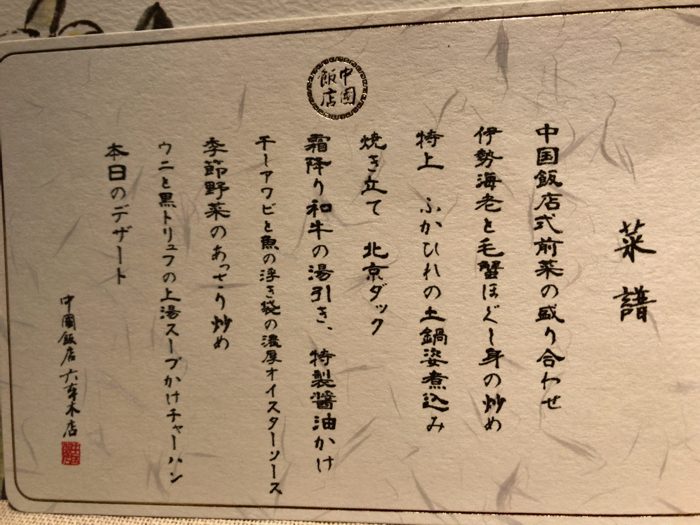 菜譜
中国飯店式前菜の盛り合わせ
伊勢海老と毛蟹ほぐし身の炒め
特上 ふかひれの土鍋姿煮込み
焼き立て 北京ダック
霜降り和牛の湯引き、特製醤油かけ
干しアワビと魚の浮き袋の濃厚オイスターソース
季節野菜のあっさり炒め
ウニと黒トリュフの上湯スープかけチャーハン
本日のデザート
中國飯店六本木店
中國
飯店